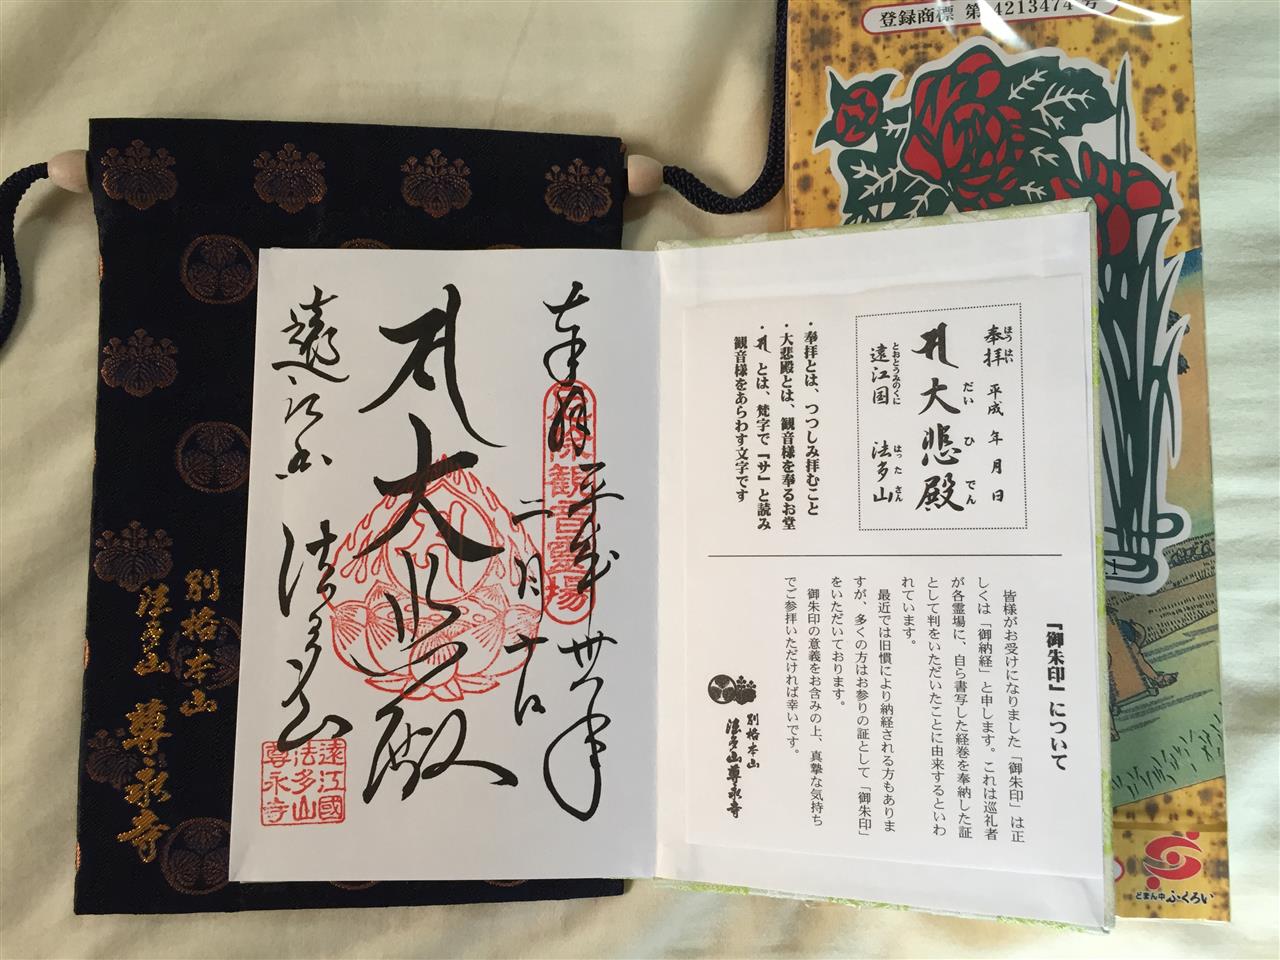 登録商標 第4213474号
奉拝 平成廿八年
二月十日
大悲殿
遠江国 法多山
遠江國
法多山
尊永寺
別格本山
法多山 尊永寺
奉拝 平成 年 月 日
ほうはい
大悲殿
だいひでん
遠江国 法多山
とおとうみのくに はったさん
・奉拝とは、つつしみ拝むこと
・大悲殿とは、観音様を奉るお堂
・ とは、梵字で『サ』と読み
観音様をあらわす文字です
『御朱印』について
皆様がお受けになりました「御朱印」は正
しくは「御納経」と申します。これは巡礼者
が各霊場に、自ら書写した経巻を奉納した証
として判をいただいたことに由来するといわ
れています。
最近では旧慣により納経される方もありま
すが、多くの方はお参りの証として「御朱印」
をいただいております。
御朱印の意義をお含みの上、真摯な気持ち
でご参拝いただければ幸いです。
別格本山
法多山尊永寺
どまん中ふくろい